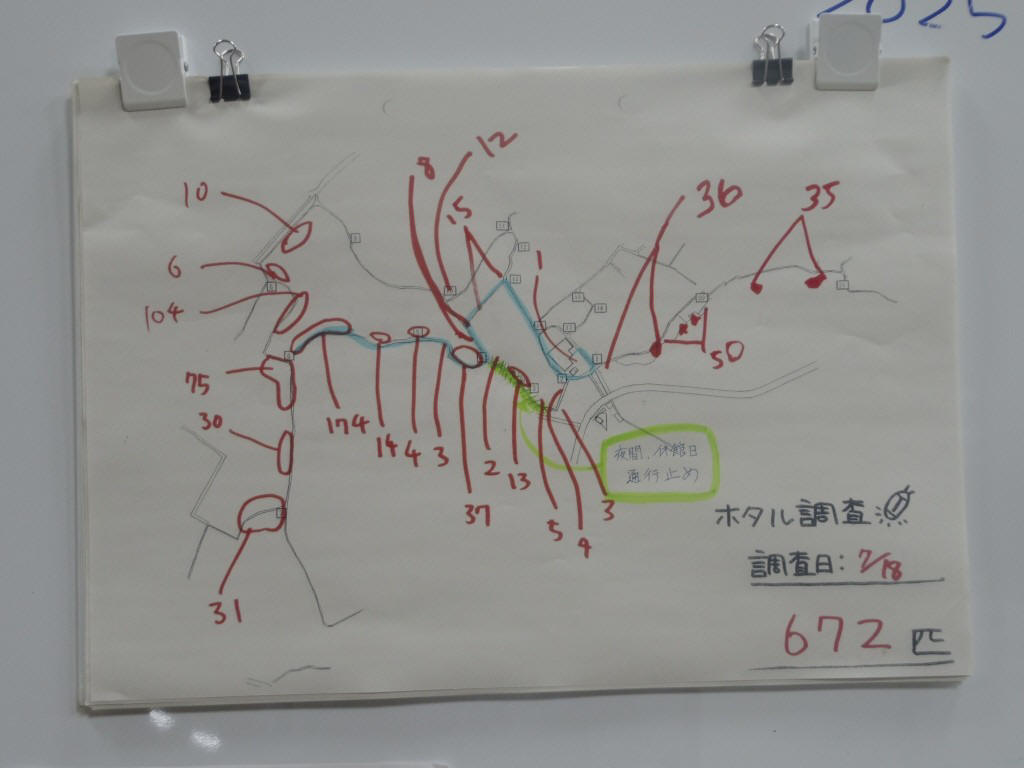 2025
12
8
10
36
35
15
1
6
104
50
75
174
30
14
4
3
2
13
37
5
4
3
31
夜間、休館日
通行止め
ホタル調査
調査日:7/18
672匹